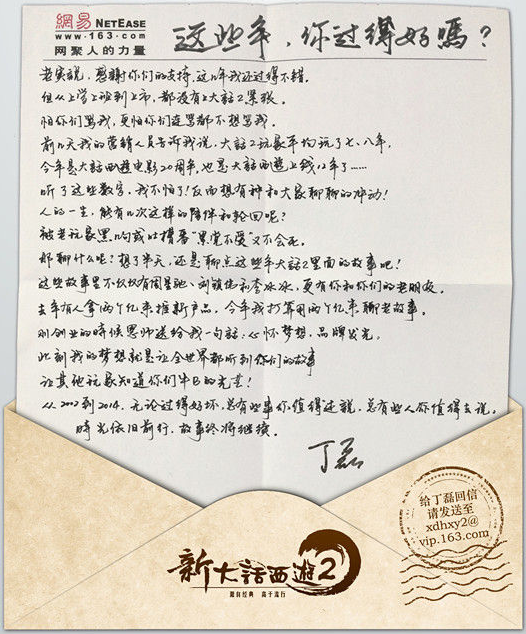 網易 NETEASE
www.163.com
网聚人的力量
这些年，你过得好嗎？
老实说，感謝你们的支持，这几年我还过得不错。
但从上学上班到上市，都没有上大話2累张。
怕你们骂我，更怕你们连骂都不想骂我。
前几天我的营銷人员告诉我说，大話2玩家平均玩了七、八年，
今年是大話西遊电影20周年，也是大話西遊上线12年了……
听了这些数字，我不怕了！反而想有种和大家聊聊的冲动！
人的一生，能有几次这样的陪伴和轮回呢？
被老玩家黑几句或以掃著“累觉不爱”又不会死。
那聊什么呢？想了半天，还是聊点这些年大話2里面的故事吧！
这些故事里不仅仅有周星驰、刘镇伟和李冰冰，更有你和你们的老朋友。
去年有人拿两个亿来推新产品，今年我打算用两个亿来聊老故事。
刚创业的時候恩师送给我一句話：心怀梦想，品牌发光，
此刻我的梦想就是让全世界都听到你们的故事
让其他玩家知道你们牛B的光芒！
从2002到2014，无论过得好坏，总有些事你值得述说，总有些人你值得去说，
時光依旧前行，故事终将继续。
丁磊
给丁磊回信
请发送至
xdhxy2@
vip.163.com
新大話西遊2
源自经典 高于流行